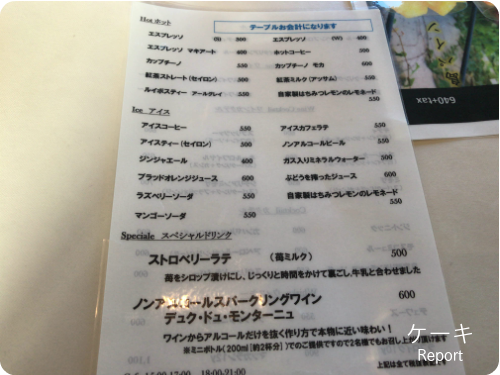 Hot ホット
テーブルお会計になります
エスプレッソ (S) 300 エスプレッソ (W) 400
エスプレッソ マキアート 400 ホットコーヒー 500
カップチーノ 550 カップチーノ モカ 600
紅茶ストレート(セイロン) 550 紅茶ミルク(アッサム) 550
ルイボスティー アールグレイ 550 自家製はちみつレモンのレモネード
550
Ice アイス
アイスコーヒー 550 アイスカフェラテ 550
アイスティー(セイロン) 550 ノンアルコールビール 550
ジンジャエール 400 ガス入りミネラルウォーター 500
ブラッドオレンジジュース 600 ぶどうを搾ったジュース 600
ラズベリーソーダ 550 自家製はちみつレモンのレモネード
550
マンゴーソーダ 550
Speciale スペシャルドリンク
ストロベリーラテ (苺ミルク) 500
苺をシロップ漬けにし、じっくりと時間をかけて裏ごし、牛乳と合わせました
ノンアルコールスパークリングワイン 600
デュク・ドゥ・モンターニュ
ワインからアルコールだけを抜く作り方で本物に近い味わい!
※ミニボトル(200ml[約2杯分])でのご提供ですので2名様でもお召し上がり頂けます
上記は全て税抜表記です
15:00-17:00 18:00-21:00
640+tax
ケーキ
Report